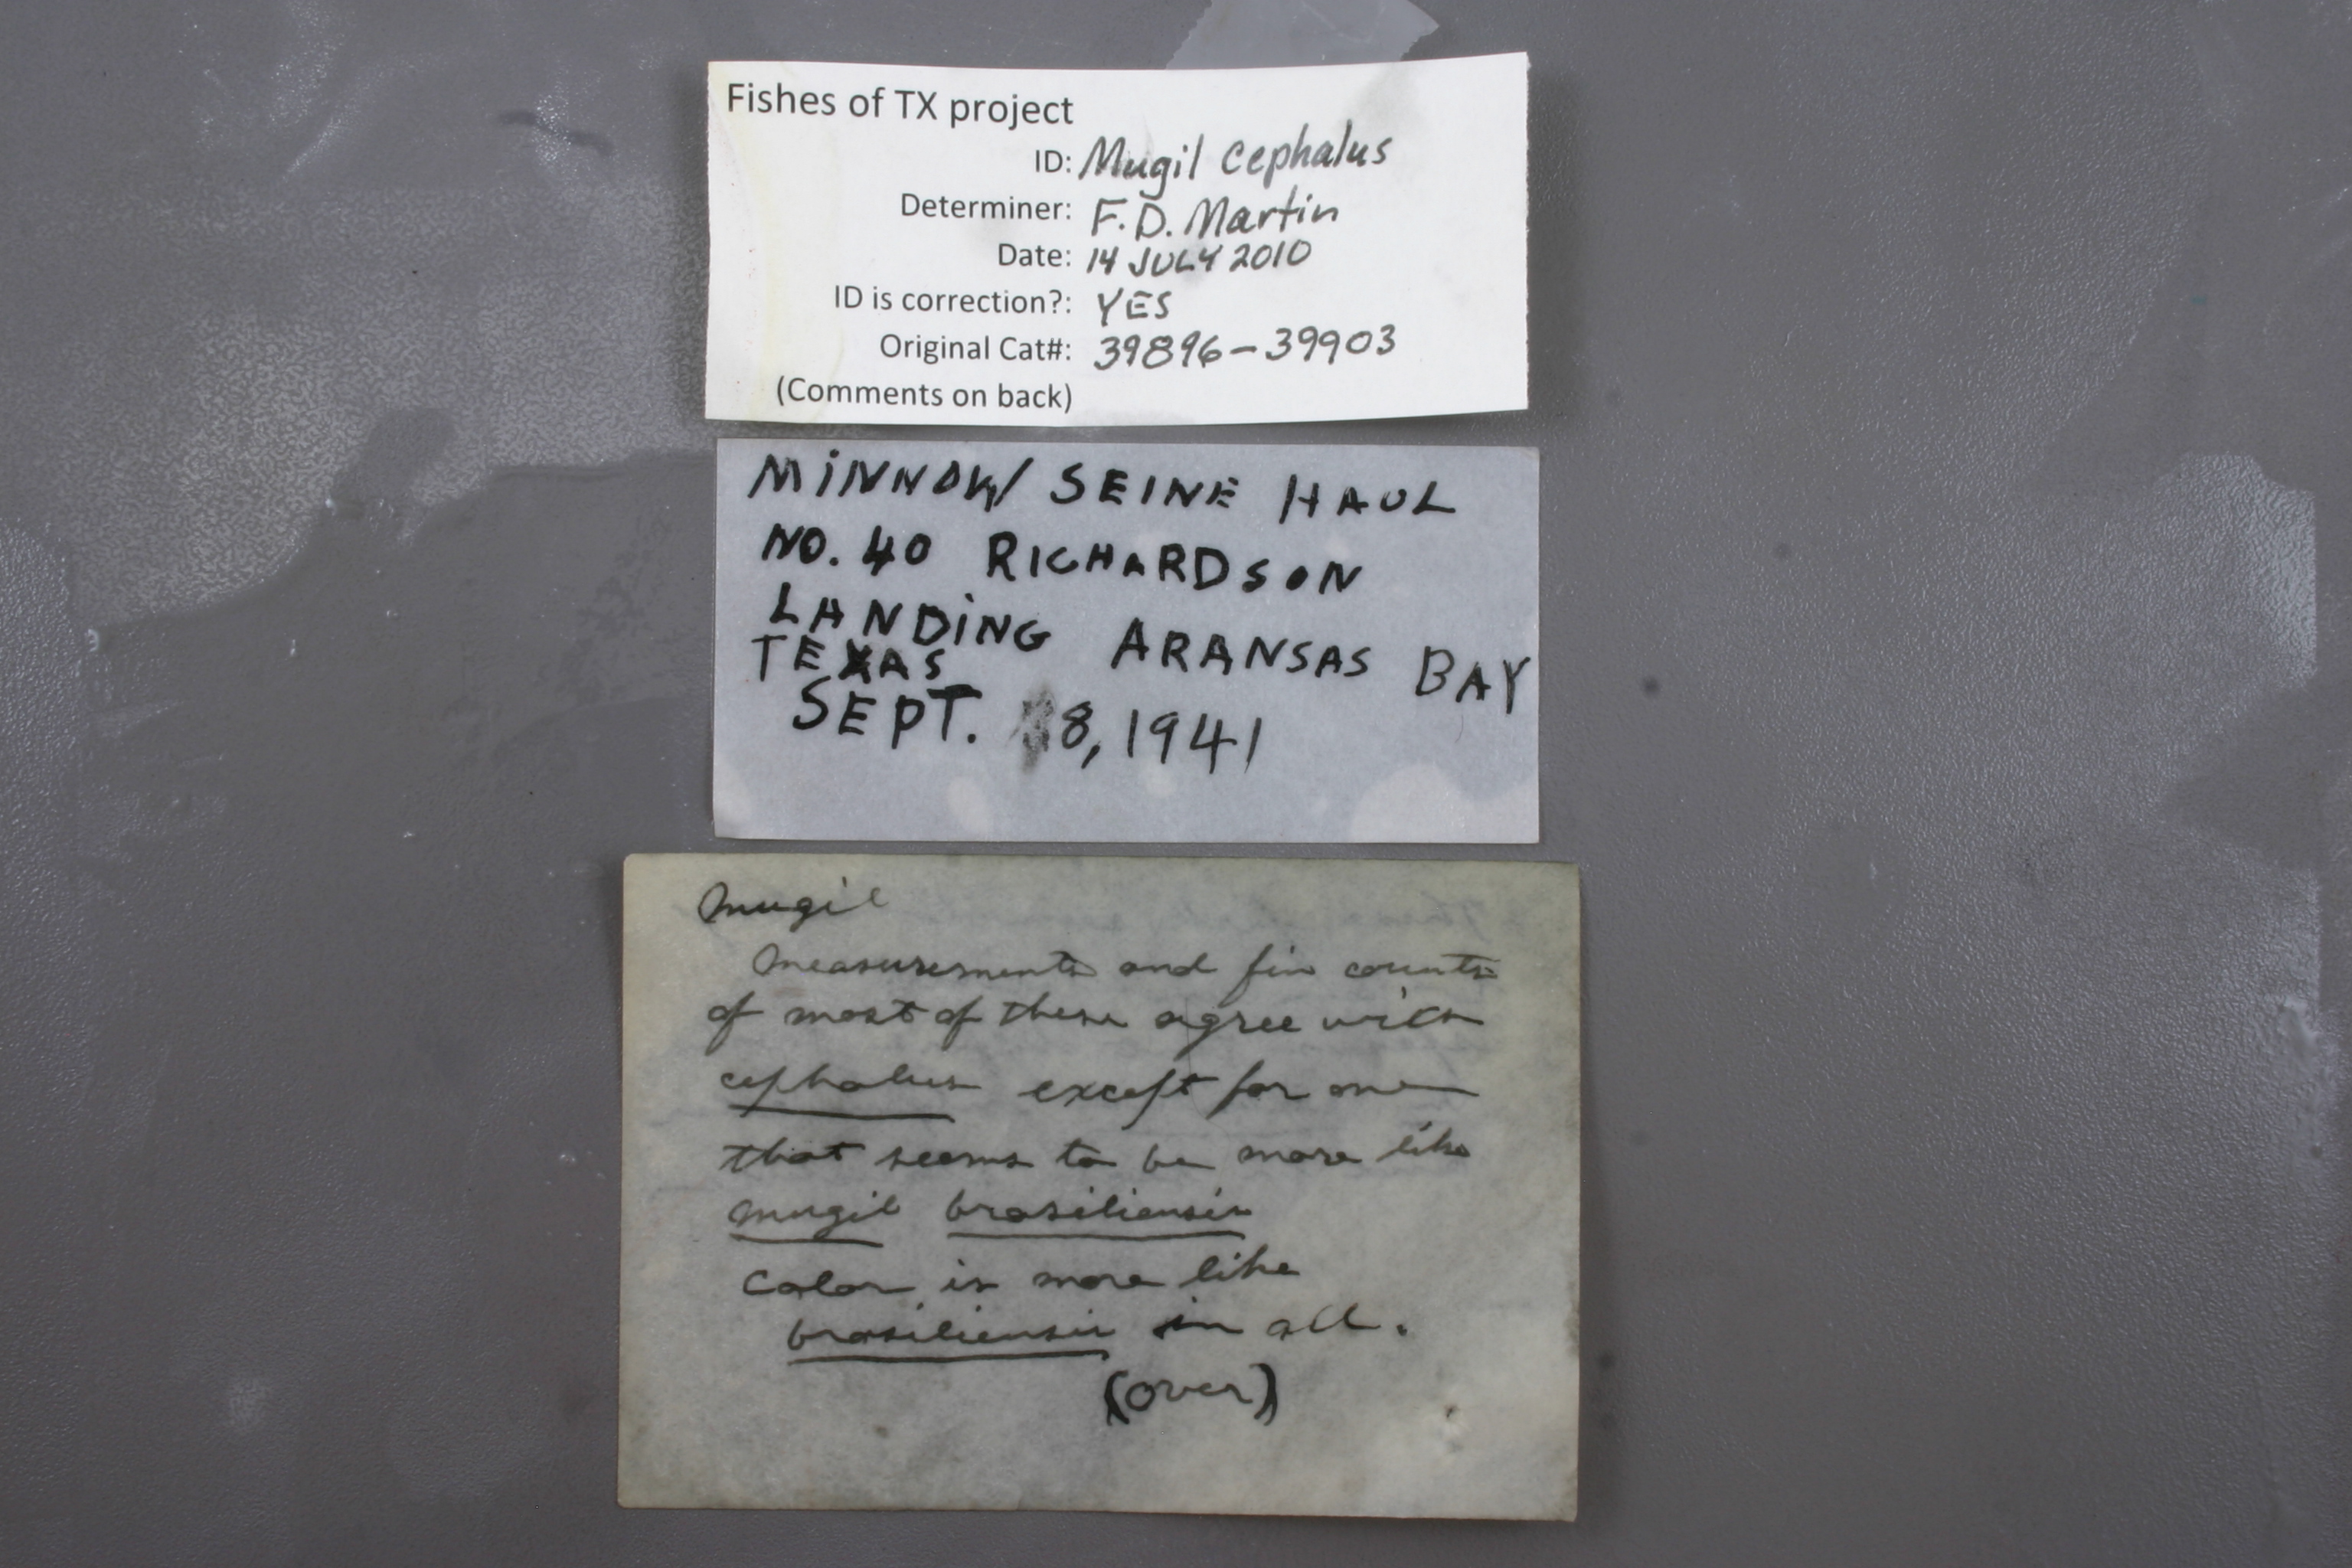 Fishes of TX project
ID: Mugil cephalus
Determiner: F.D. Martin
Date: 14 JULY 2010
ID is correction?: YES
Original Cat#: 39896-39903
(Comments on back)
MINNOW SEINE HAUL
NO. 40 RICHARDSON
LANDING ARANSAS BAY
TEXAS
SEPT. 8, 1941
Mugil
Measurements and fin counts
of most of these agree with
cephalus except for one
that seems to be more like
Mugil brasiliensis
Color is more like
brasiliensis in all.
(over)